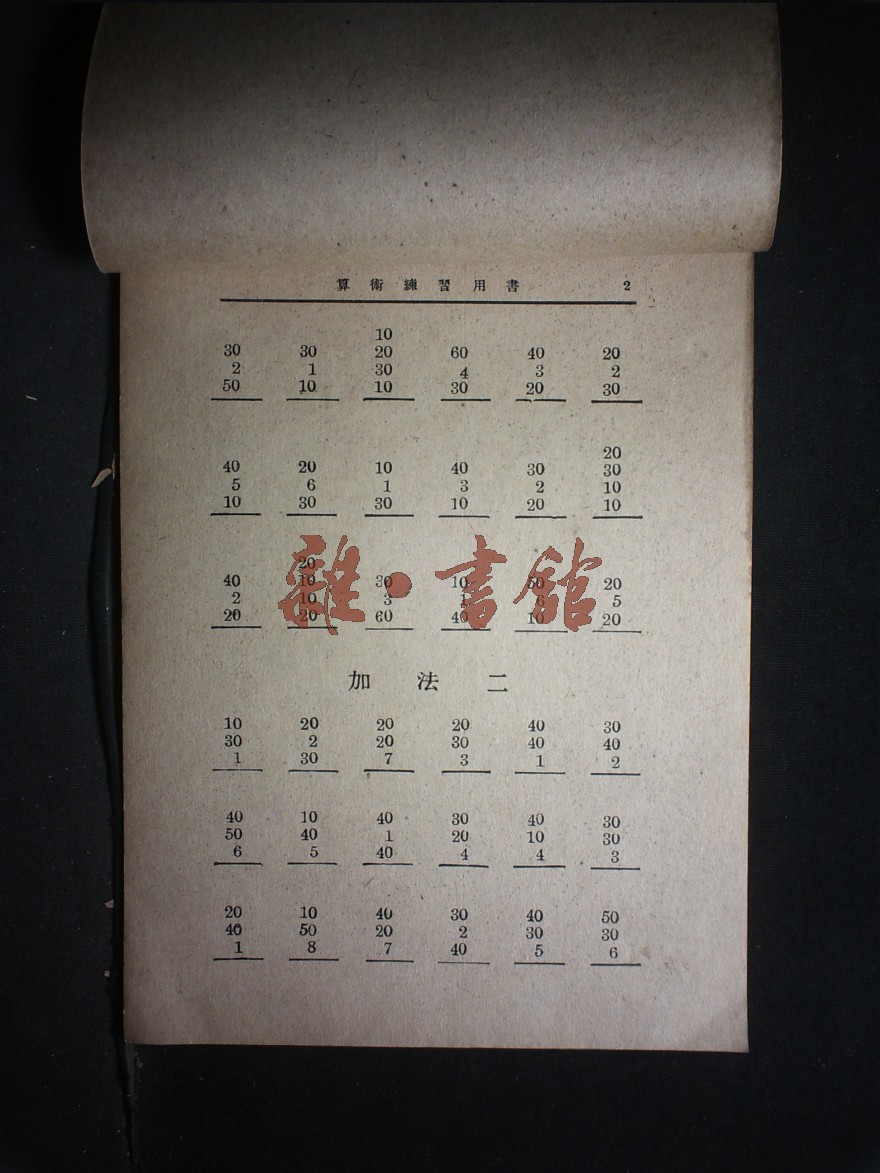 算術練習用書 2
10
30 30 20 60 40 20
2 1 30 4 3 2
50 10 10 30 20 30
20
40 20 10 40 30 30
5 6 1 3 2 10
10 30 30 10 20 10
20
40 10 30 10 50 20
2 10 3 1 5
20 20 60 40 10 20
雜·書館
加法二
10 20 20 20 40 30
30 2 20 30 40 40
1 30 7 3 1 2
40 10 40 30 40 30
50 40 1 20 10 30
6 5 40 4 4 3
20 10 40 30 40 50
40 50 20 2 30 30
1 8 7 40 5 6